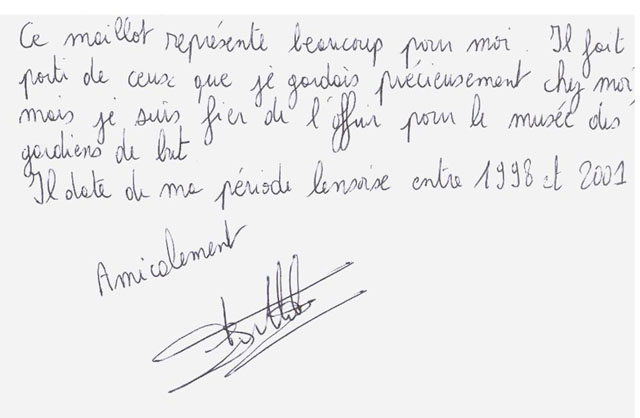 Ce maillot représente beaucoup pour moi. Il fait
parti de ceux que je gardais précieusement chez moi
mais je suis fier de l'offrir pour le musée des
gardiens de but
Il date de ma période lensoise entre 1998 et 2001
Amicalement